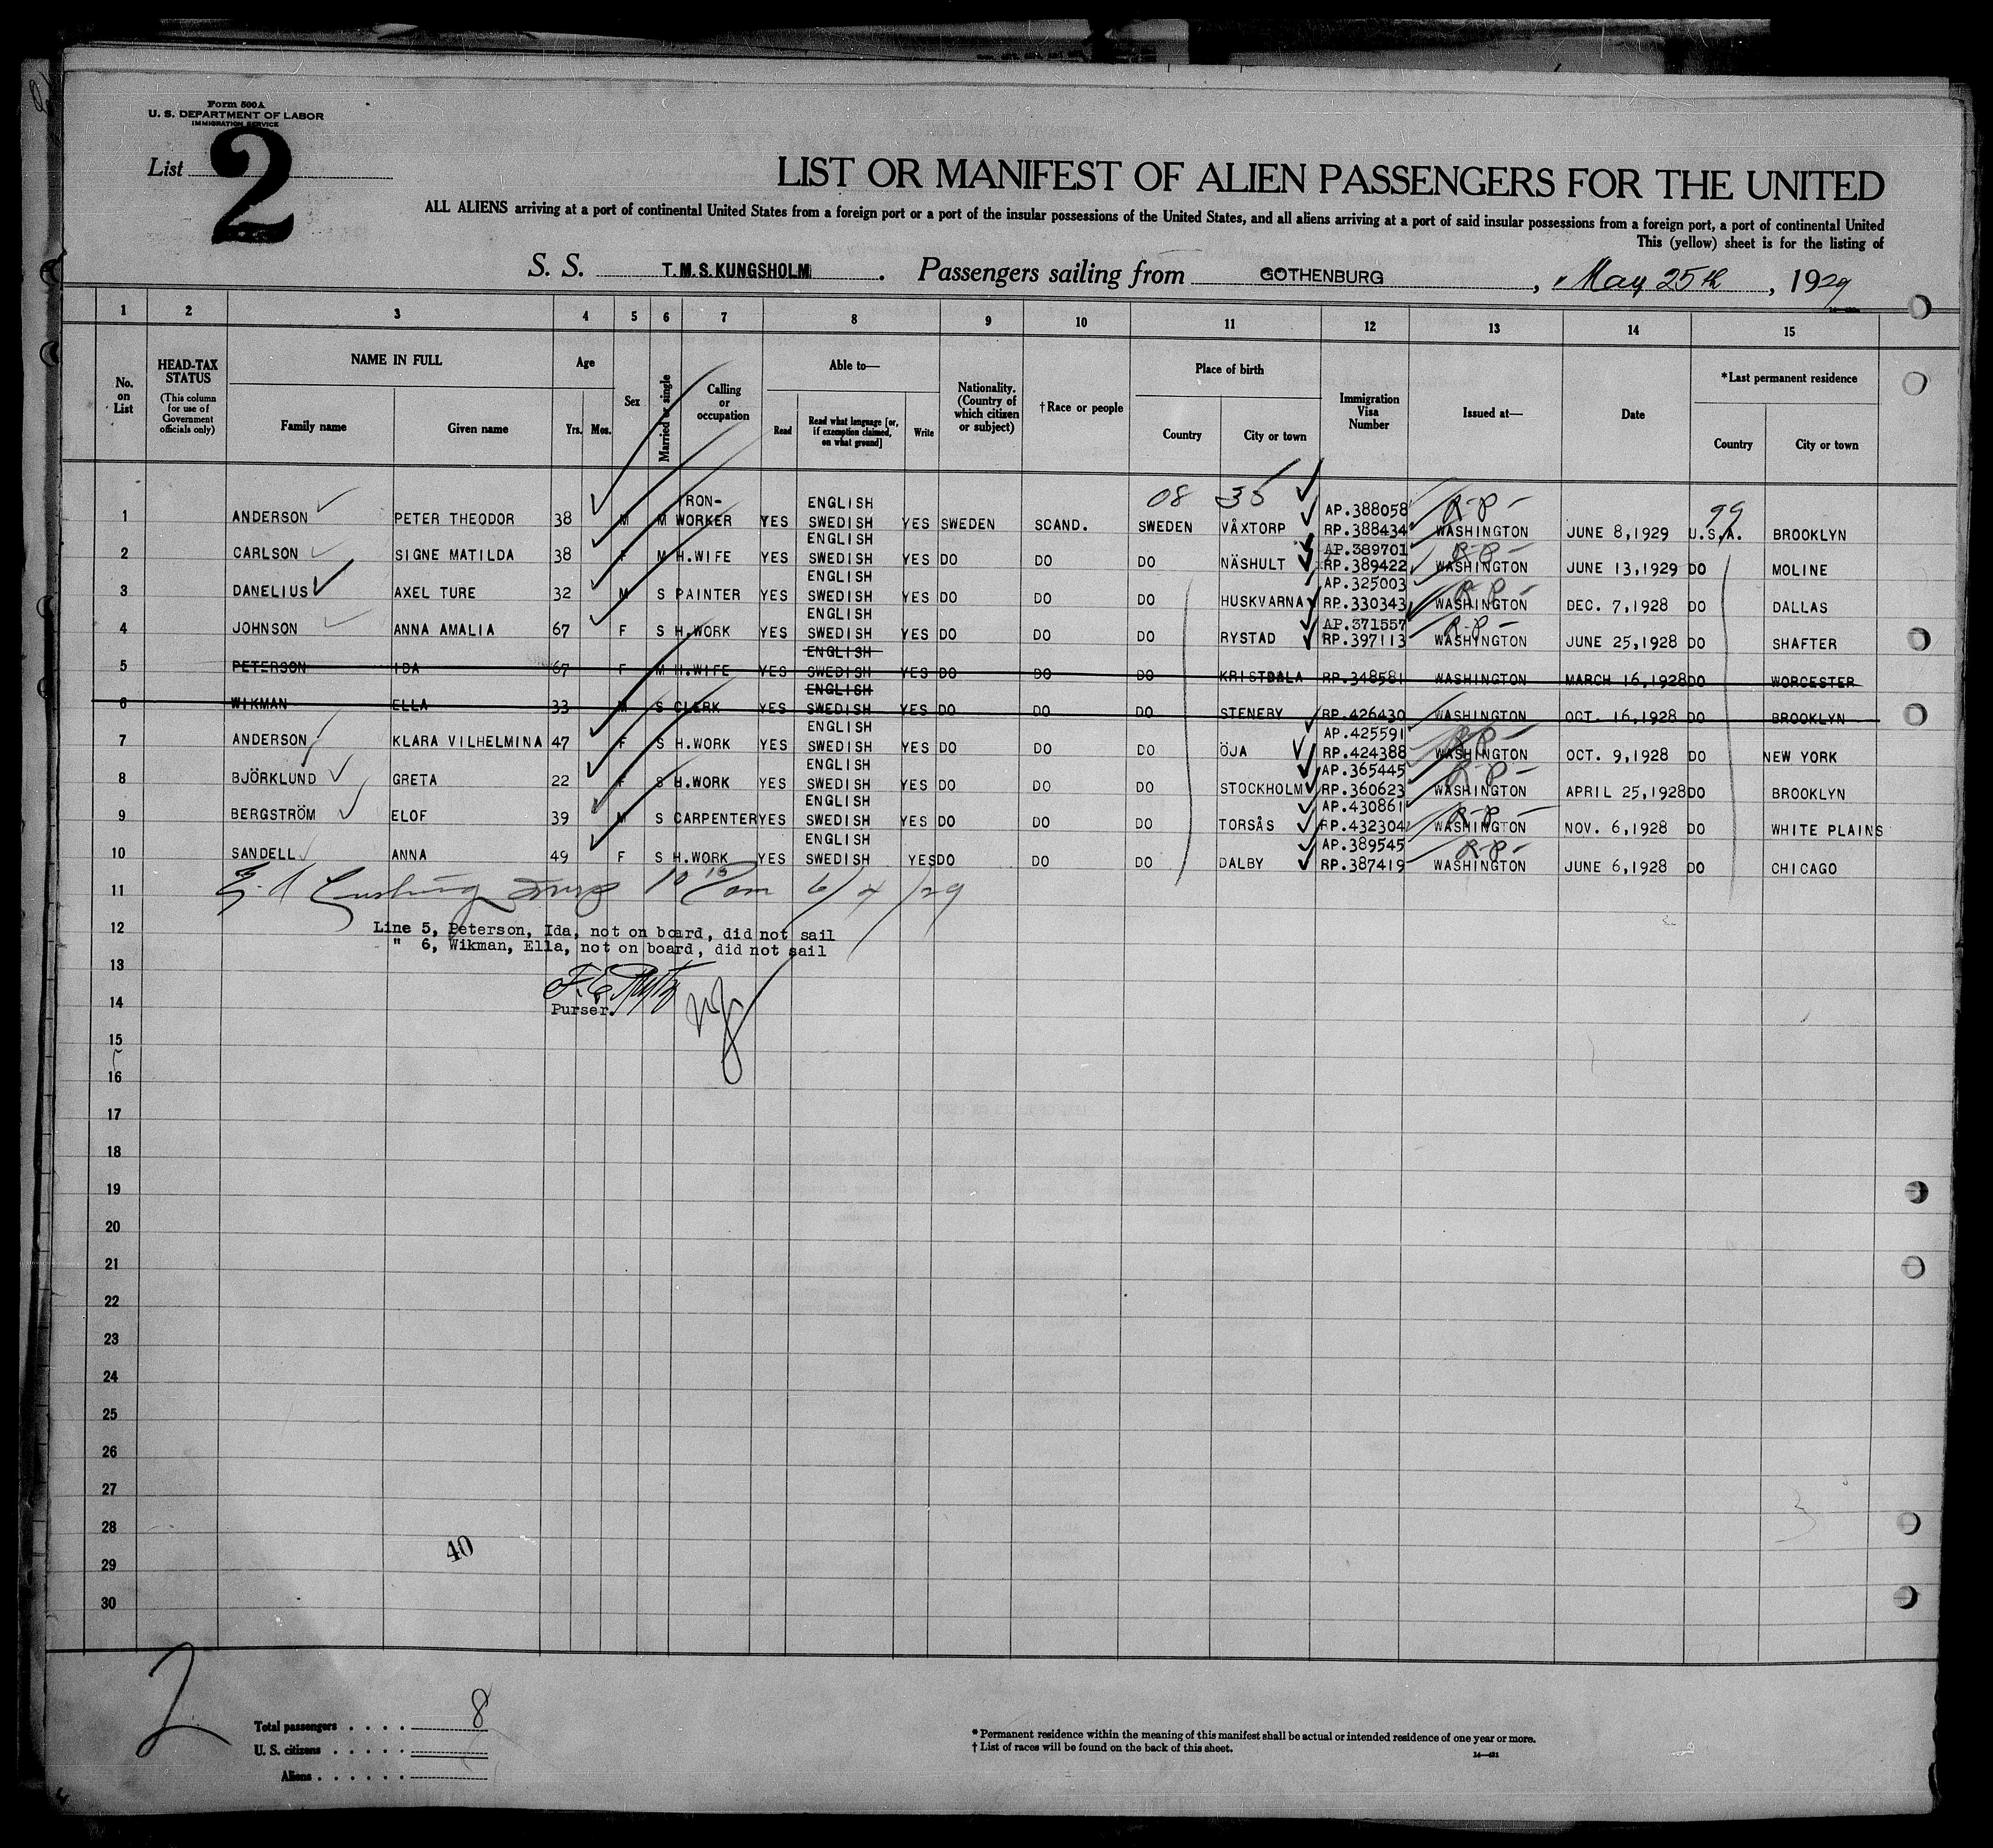 Form 500A
U. S. DEPARTMENT OF LABOR
IMMIGRATION SERVICE
List 2
LIST OR MANIFEST OF ALIEN PASSENGERS FOR THE UNITED
ALL ALIENS arriving at a port of continental United States from a foreign port or a port of the insular possessions of the United States, and all aliens arriving at a port of said insular possessions from a foreign port, a port of continental United
This (yellow) sheet is for the listing of
S. S. T.M.S. KUNGSHOLM. Passengers sailing from GOTHENBURG, May 25th, 1929
1 2 3 4 5 6 7 8 9 10 11 12 13 14 15
No. on List
HEAD-TAX STATUS
(This column for use of Government officials only)
NAME IN FULL
Family name Given name
Age
Yrs. Mos.
Sex
Married or single
Calling or occupation
Able to—
Read
Read what language [or, if exemption claimed, on what ground]
Write
Nationality. (Country of which citizen or subject)
†Race or people
Place of birth
Country City or town
Immigration Visa Number
Issued at—
Date
*Last permanent residence
Country City or town
08 35 99
1 ANDERSON PETER THEODOR 38 M M IRON-WORKER YES ENGLISH SWEDISH YES SWEDEN SCAND. SWEDEN VÅXTORP AP.388058 RP.388434 R-P- WASHINGTON JUNE 8,1929 U.S.A. BROOKLYN
2 CARLSON SIGNE MATILDA 38 F M H.WIFE YES ENGLISH SWEDISH YES DO DO DO NÄSHULT AP.389701 RP.389422 R-P- WASHINGTON JUNE 13,1929 DO MOLINE
3 DANELIUS AXEL TURE 32 M S PAINTER YES ENGLISH SWEDISH YES DO DO DO HUSKVARNA AP.325003 RP.330343 R-P- WASHINGTON DEC. 7,1928 DO DALLAS
4 JOHNSON ANNA AMALIA 67 F S H.WORK YES ENGLISH SWEDISH YES DO DO DO RYSTAD AP.371557 RP.397113 R-P- WASHINGTON JUNE 25,1928 DO SHAFTER
5 PETERSON IDA 67 F M H.WIFE YES ENGLISH SWEDISH YES DO DO DO KRISTDALA RP.348581 WASHINGTON MARCH 16,1928 DO WORCESTER
6 WIKMAN ELLA 33 M S CLERK YES ENGLISH SWEDISH YES DO DO DO STENEBY RP.426430 WASHINGTON OCT. 16,1928 DO BROOKLYN
7 ANDERSON KLARA VILHELMINA 47 F S H.WORK YES ENGLISH SWEDISH YES DO DO DO ÖJA AP.425591 RP.424388 R-P- WASHINGTON OCT. 9,1928 DO NEW YORK
8 BJÖRKLUND GRETA 22 F S H.WORK YES ENGLISH SWEDISH YES DO DO DO STOCKHOLM AP.365445 RP.360623 R-P- WASHINGTON APRIL 25,1928 DO BROOKLYN
9 BERGSTRÖM ELOF 39 M S CARPENTER YES ENGLISH SWEDISH YES DO DO DO TORSÅS AP.430861 RP.432304 R-P- WASHINGTON NOV. 6,1928 DO WHITE PLAINS
10 SANDELL ANNA 49 F S H.WORK YES ENGLISH SWEDISH YES DO DO DO DALBY AP.389545 RP.387419 R-P- WASHINGTON JUNE 6,1928 DO CHICAGO
11 6/4/29
12 Line 5, Peterson, Ida, not on board, did not sail
" 6, Wikman, Ella, not on board, did not sail
13
14 Purser.
15
16
17
18
19
20
21
22
23
24
25
26
27
28
40
29
30
2
Total passengers . . . . 8
U. S. citizens . . . . .
Aliens . . . . . .
* Permanent residence within the meaning of this manifest shall be actual or intended residence of one year or more.
† List of races will be found on the back of this sheet.
14—421